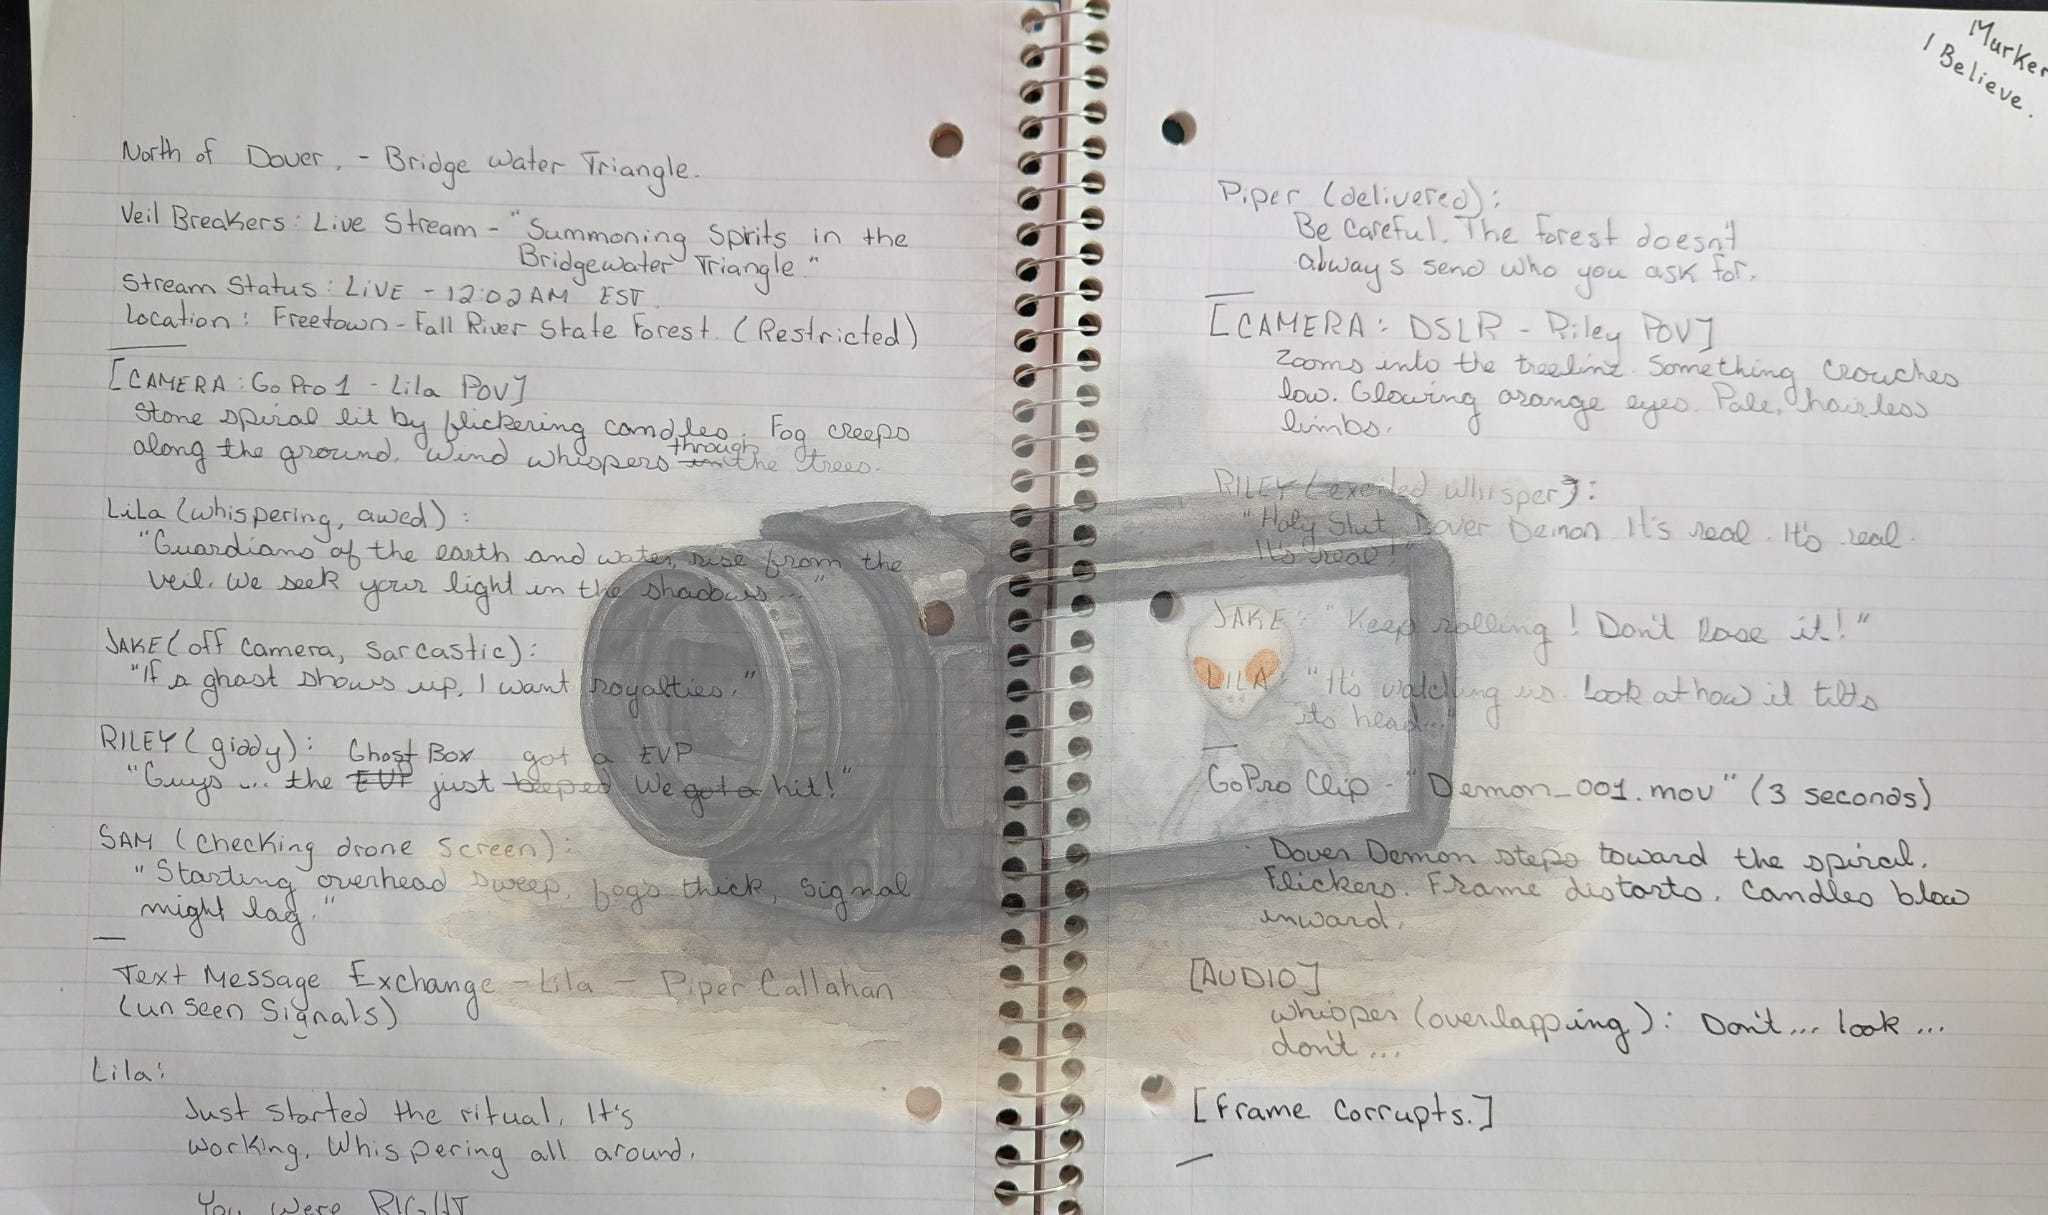 North of Dover, - Bridge Water Triangle.
Veil Breakers: Live Stream - "Summoning Sprits in the
Bridgewater Triangle"
Stream Status: LiVE - 12:02 AM EST.
Location: Freetown - Fall River State Forest. (Restricted)
[CAMERA: GoPro1 - Lila POV]
Stone spiral lit by flickering candles. Fog creeps
along the ground. Wind whispers in through the trees.
LiLa (whispering, awed):
"Guardians of the earth and water, rise from the
veil. We seek your light in the shadows..."
JAKE (off camera, sarcastic):
"If a ghost shows up, I want royalties."
RILEY (giddy): Ghost Box got a EVP
"Guys ... the EVP just beeped We got a hit!"
SAM (checking drone screen):
"Starting overhead sweep, fog's thick, signal
might lag."
Text Message Exchange - Lila - Piper Callahan
(un seen Signals)
Lila:
Just started the ritual. It's
working. Whispering all around.
You were RIGHT
Murker
I Believe.
Piper (delivered):
Be careful. The forest doesn't
always send who you ask for.
[CAMERA: DSLR - Riley POV]
Zooms into the treeline. Something crouches
low. Glowing orange eyes. Pale, hairless
limbs.
RILEY (excited whisper):
"Holy Shit Dover Demon. It's real. It's real.
It's real!"
JAKE: "Keep rolling! Don't lose it!"
LILA: "It's watching us. Look at how it tilts
its head..."
GoPro Clip - "Demon_001.mov" (3 seconds)
Dover Demon steps toward the spiral.
Flickers. Frame distorts. Candles blow
inward.
[AUDIO]
whisper (overlapping): Don't... look ...
don't ...
[Frame Corrupts.]